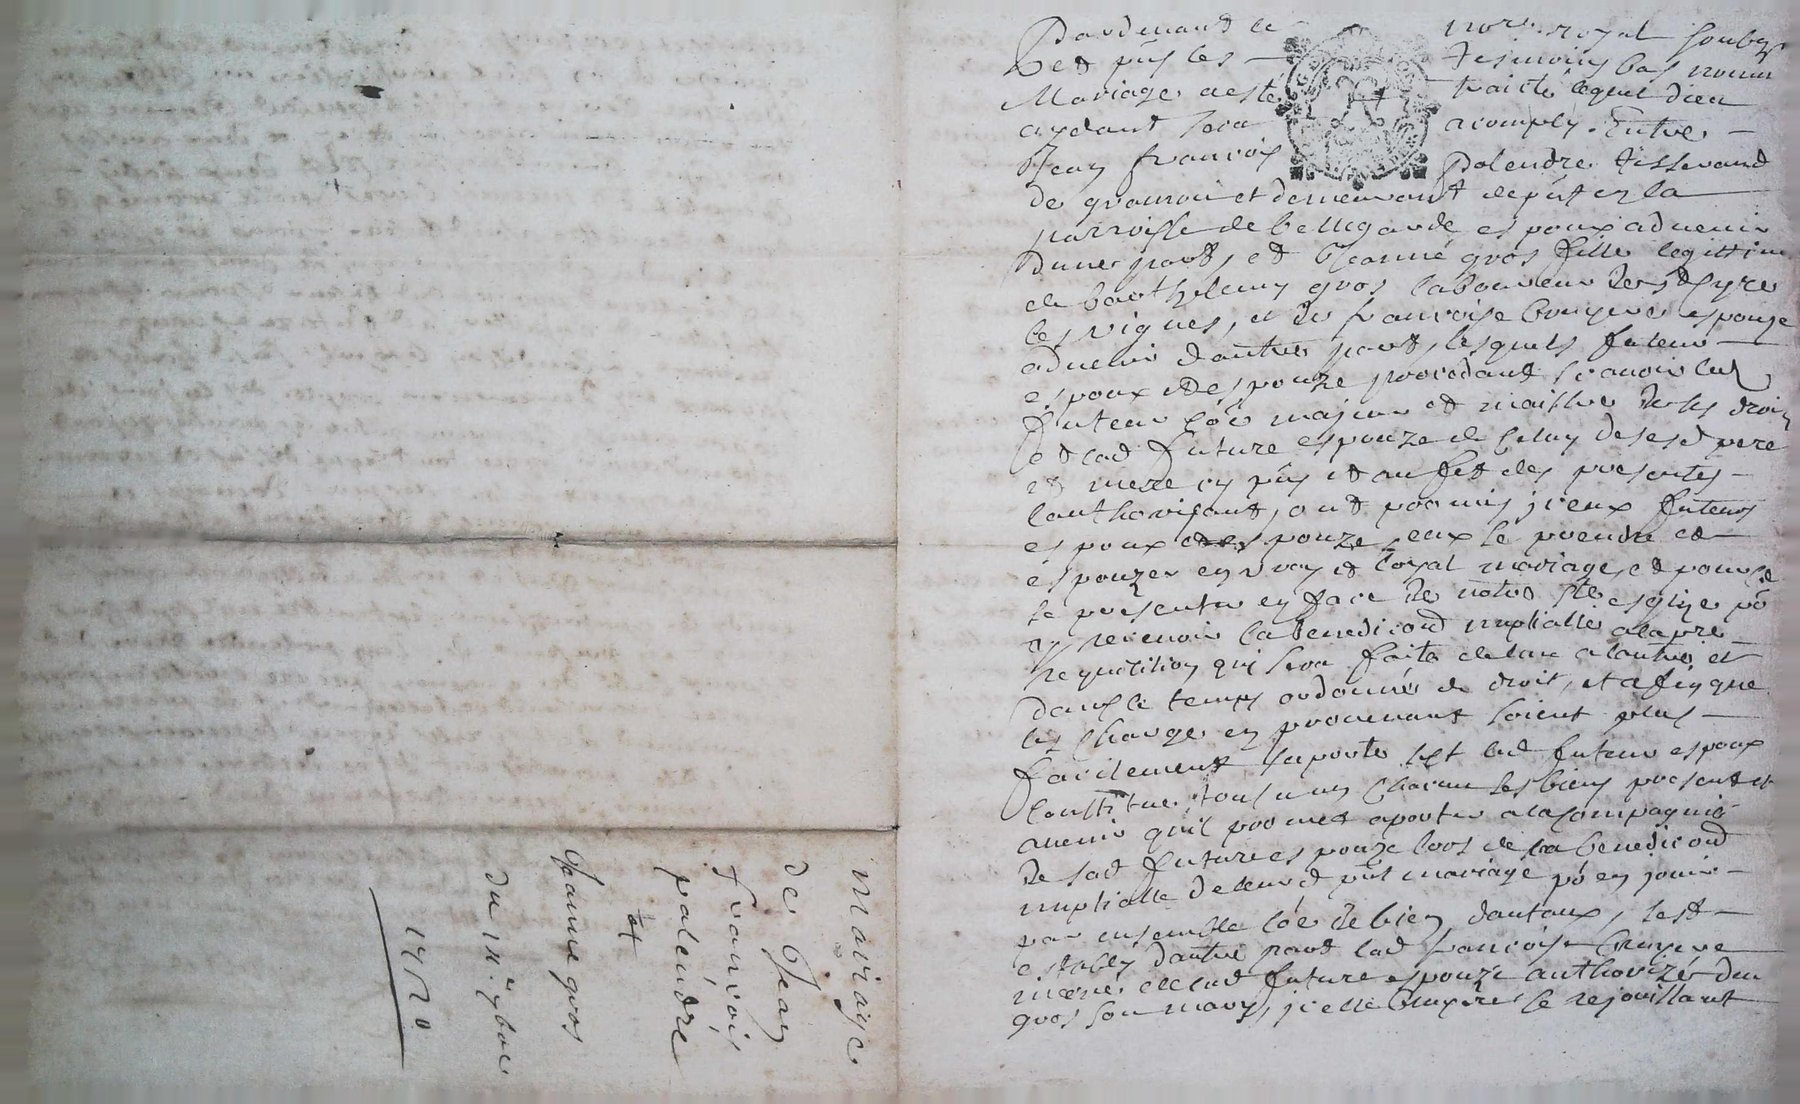 mariage
de Jean
francois
palendre
et
Jeanne gros
du 9bre
Pardevand le nore royal soubsé
et pñs les tesmoins bas nommé
Mariage a esté traicté lequel dieu
aydant sera acomply. Entre
Jean francois Palendre tisserand
de et demeurant depuis en la
parroisse de bellegarde espoux advenir
dune part, et Jeanne gros fille legittime
de barthelemy gros laboureur de
les vignes, et de francoise bruyere espouze
advenir dautre part, lesquels futeur
espoux et espouze procedant scavoir led
futeur côe majeur et maistre de ses droits
et lad future espouze de celuy de sesd pere
et mere cy pñs et au fet des presentes
lauthorisant, ont promis iceux futeurs
espoux et espouze eux se prendre et
espouzer en vray et loyal mariage, et pour ce
se presenter en face de notre ste esglize pō
y recevoir la benediction nuptialle a la pre
requisition quy sera faite de lun a lautre et
dans le temps ordonné de droit, et afin que
les charges en provenant soient plus
facilement suporté sest led futeur espoux
constitué tous un chacun ses biens present et
avenir quil promet aporter a la compagnie
de sad future espouze lors de la benediction
nuptialle de leurd pñt mariage pō en jouir
par ensemble côe de bien dautaux, sest
establey dautre part lad francoise bruyere
mere de lad future espouze authorizée dud
gros son mary, icelle bruyere se rejouissant